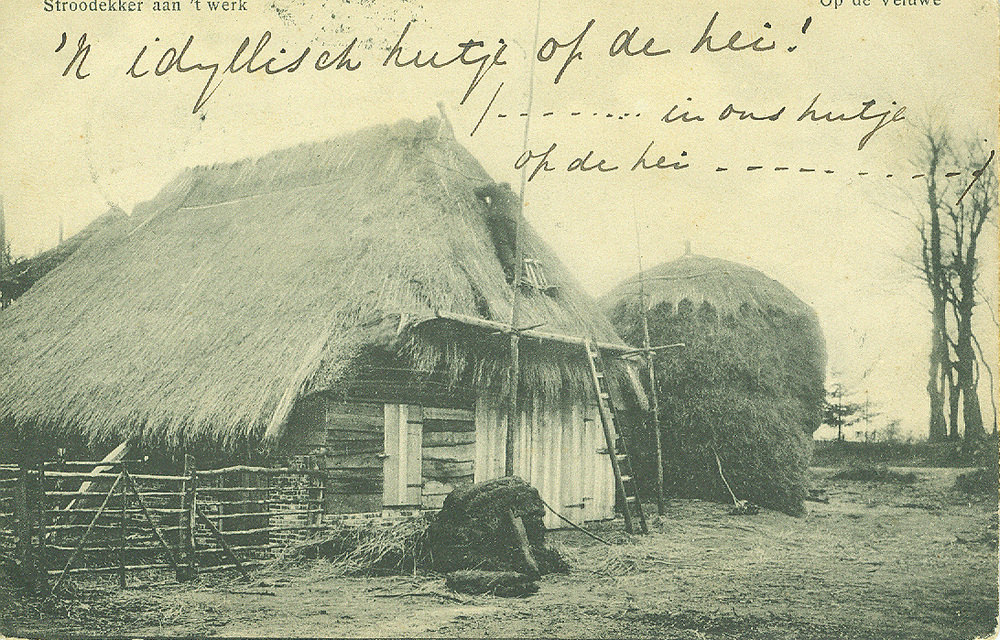 Stroodekker aan 't werk
Op de Veluwe
'n idyllisch hutje op de hei!
/--------- in ons hutje
op de hei ----------/